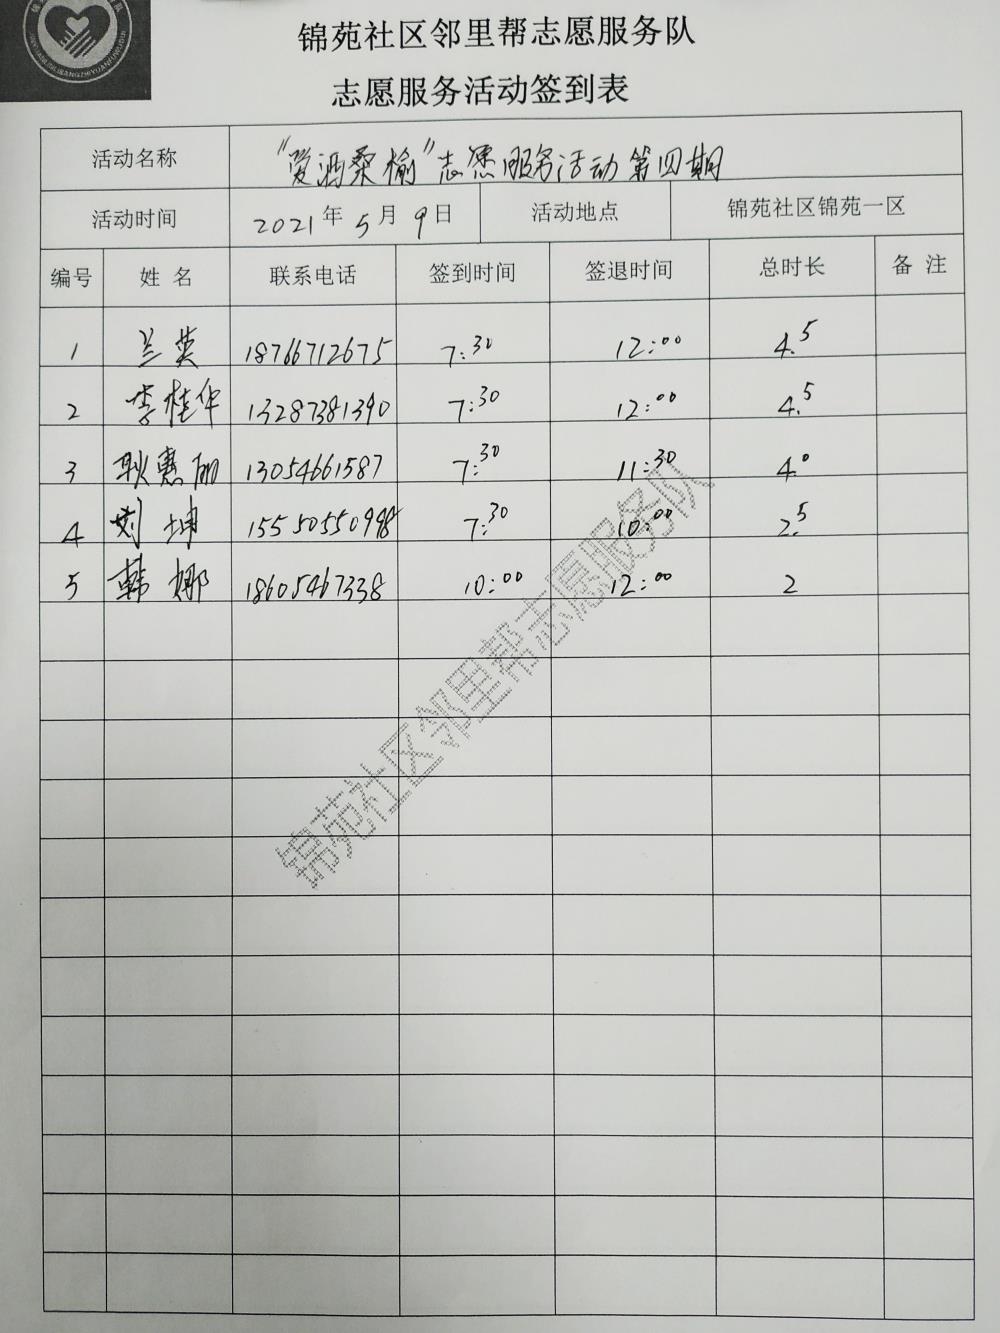 锦苑社区邻里帮志愿服务队
志愿服务活动签到表
活动名称 “爱洒桑榆”志愿服务活动第四期
活动时间 2021年5月9日 活动地点 锦苑社区锦苑一区
编号 姓 名 联系电话 签到时间 签退时间 总时长 备 注
1 兰英 18766712675 7:30 12:00 4.5
2 李桂华 13287381390 7:30 12:00 4.5
3 耿惠丽 13054661587 7:30 11:30 4.0
4 刘坤 15550550998 7:30 10:00 2.5
5 韩娜 18605467338 10:00 12:00 2
锦苑社区邻里帮志愿服务队